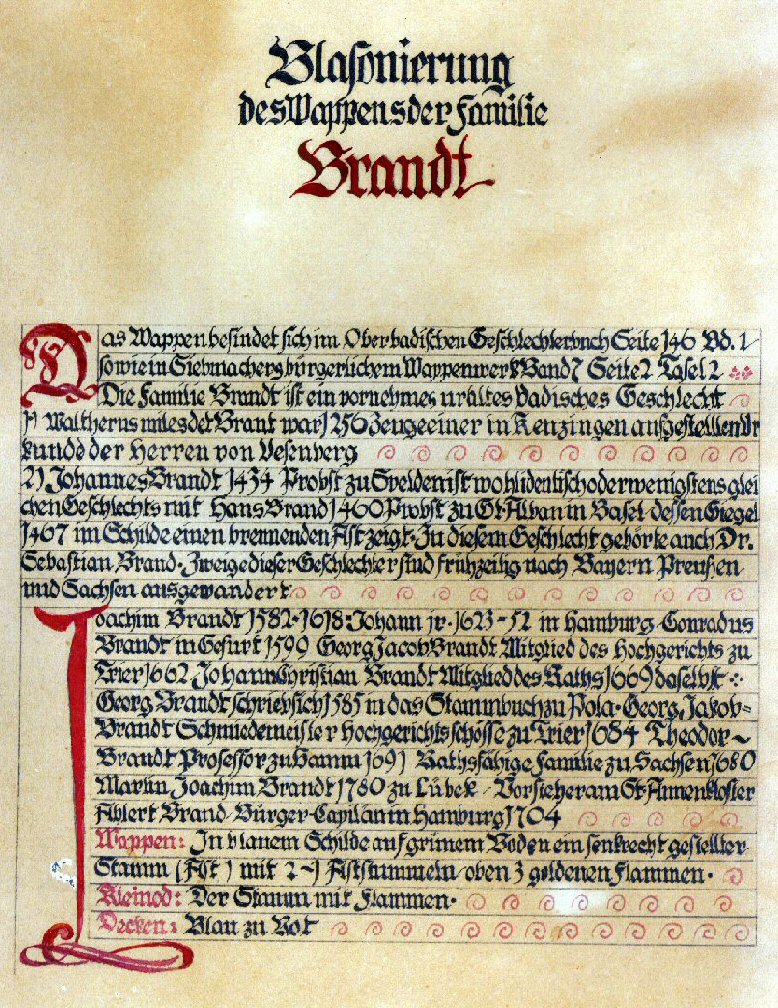 Blasonierung
des Wappens der Familie
Brandt
Das Wappen befindet sich im Oberbadischen Geschlechterbuch Seite 146 Bd. 1
sowie in Siebmachers bürgerlichem Wappenwerk Band 7 Seite 2 Tafel 2
Die Familie Brandt ist ein vornehmes uraltes badisches Geschlecht
1) Waltherus miles det Brant war 1256 Zeuge einer in Kenzingen aufgestellten Ur
kunde der Herren von Vesenberg
2) Johannes Brandt 1434 Probst zu Svelden ist wohl identisch oder wenigstens glei
chen Geschlechts mit Hans Brand 1460 Probst zu St. Alban in Basel dessen Siegel
1467 im Schilde einen brennenden Ast zeigt. Zu diesem Geschlecht gehörte auch Dr.
Sebastian Brand. Zweige dieser Geschlechter sind frühzeitig nach Bayern Preußen
und Sachsen ausgewandert
Joachim Brandt 1582-1618: Johann jr. 1623-52 in Hamburg Conradus
Brandt in Erfurt 1599 Georg Jacob Brandt Mitglied des Hochgerichts zu
Trier 1662 Johann Christian Brandt Mitglied des Raths 1669 daselbst
Georg Brandt schrieb sich 1585 in das Stammbuch zu Pola. Georg, Jakob-
Brandt Schmiedemeister Hochgerichtsschösse zu Trier 1684 Theodor
Brandt Professor zu Hamm 1691 Rathsfähige Familie zu Sachsen 1680
Martin Joachim Brandt 1780 zu Lübek Vorsteher am St. Annenkloster
Ahlert Brand Bürger-Capitän in Hamburg 1704
Wappen: In blauem Schilde auf grünem Boden ein senkrecht gestellter
Stamm (Ast) mit 2-1 Aststummeln oben 3 goldenen Flammen.
Kleinod: Der Stamm mit Flammen.
Decken: Blau zu Rot